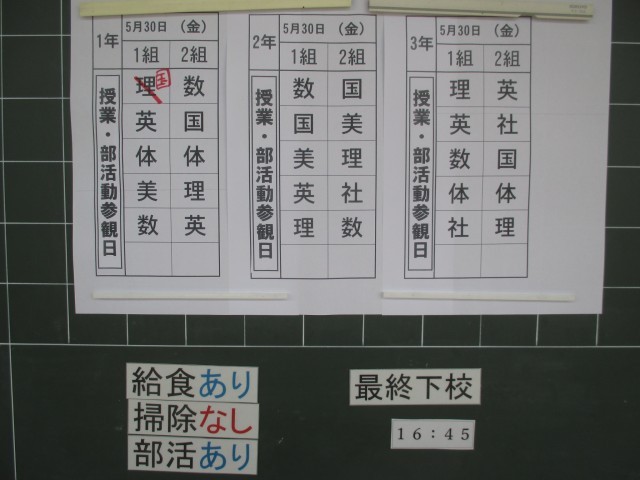 1年 5月30日 （金）
1組 2組
授業・部活動参観日
理 国 数
英 国
体 体
美 理
数 英
2年 5月30日 （金）
1組 2組
授業・部活動参観日
数 国
国 美
美 理
英 社
理 数
3年 5月30日 （金）
1組 2組
授業・部活動参観日
理 英
英 社
数 国
体 体
社 理
給食あり
掃除なし
部活あり
最終下校
16：45